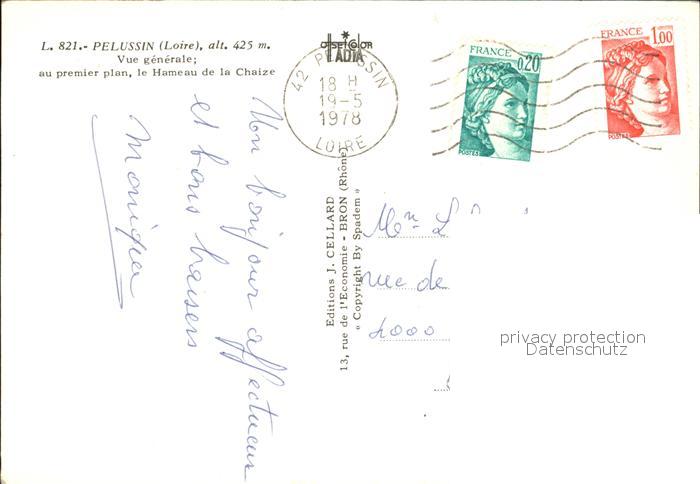 L. 821.- PELUSSIN (Loire), alt. 425 m.
Vue générale;
au premier plan, le Hameau de la Chaize
42 PELUSSIN
18 H
19-5
1978
LOIRE
FRANCE
0,20
POSTES
FRANCE
1,00
POSTES
Un bonjour affectueux
et bons baisers
Monique
Editions J. CELLARD
13, rue de l'Economie - BRON (Rhône)
« Copyright By Spadem »
rue de
4000
privacy protection
Datenschutz